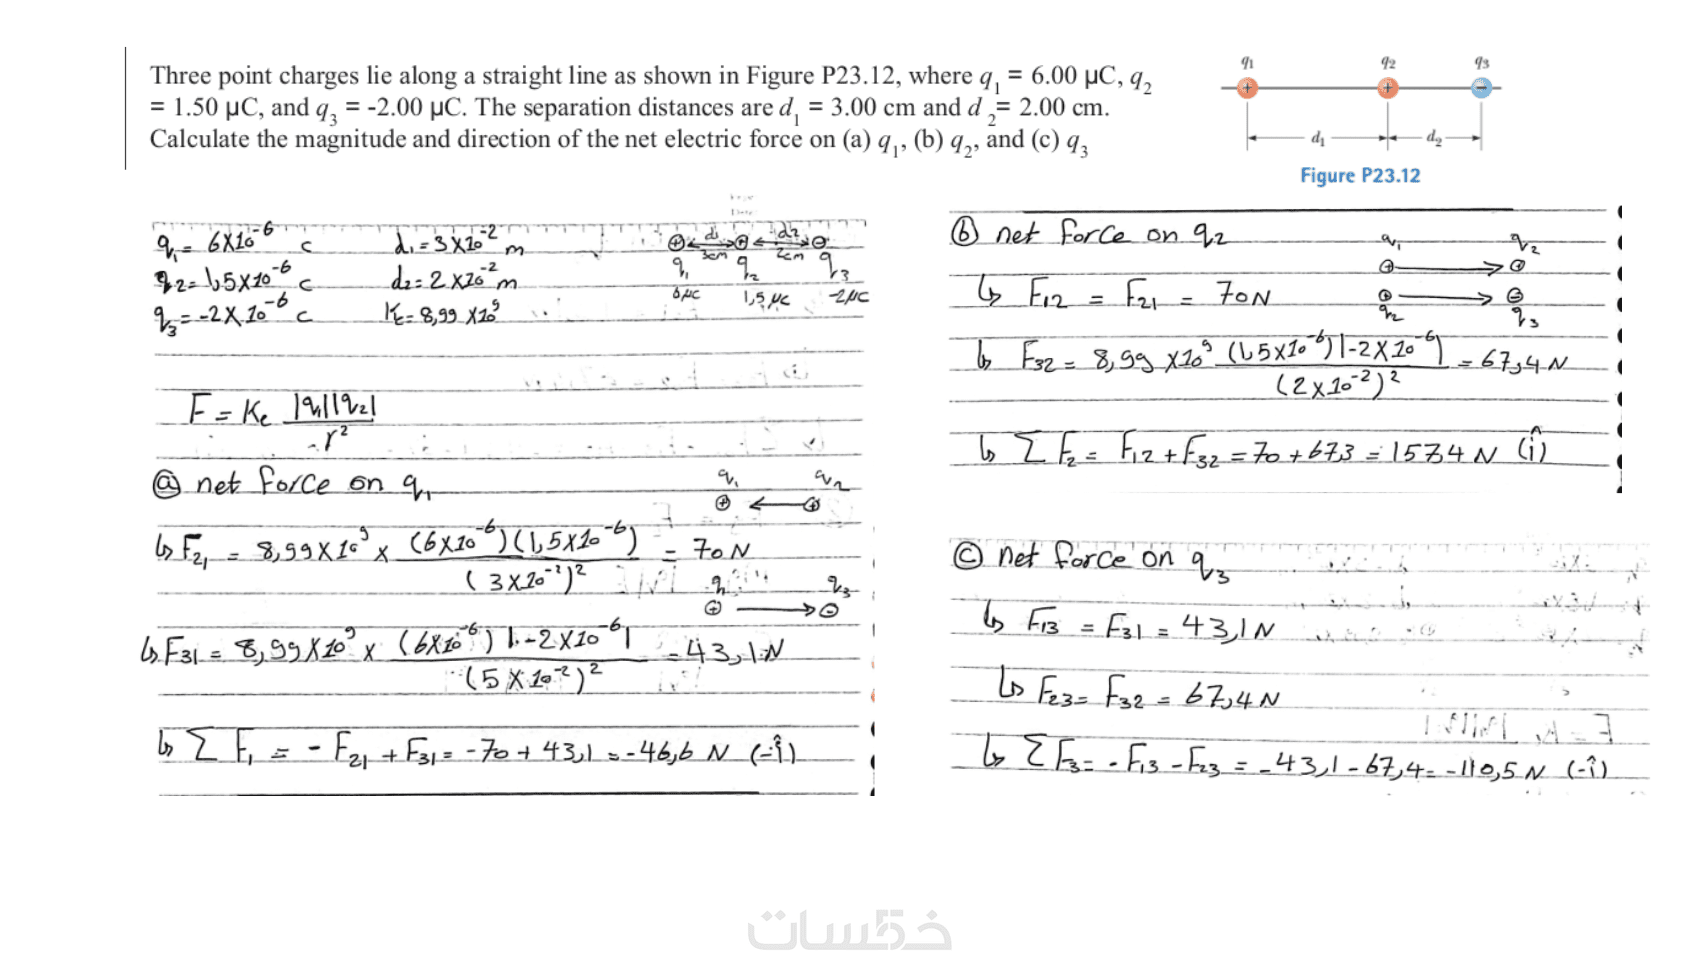 Three point charges lie along a straight line as shown in Figure P23.12, where q₁ = 6.00 µC, q₂
= 1.50 µC, and q₃ = -2.00 µC. The separation distances are d₁ = 3.00 cm and d ₂= 2.00 cm.
Calculate the magnitude and direction of the net electric force on (a) q₁, (b) q₂, and (c) q₃
q₁ q₂ q₃
+ + −
d₁ d₂
Figure P23.12
q₁ = 6X10⁻⁶ c d₁ = 3X10⁻² m
q₂ = 1,5X10⁻⁶ c d₂ = 2X10⁻² m
q₃ = -2X10⁻⁶ c K = 8,99 X10⁹
d₁ d₂
3cm 2cm
q₁ q₂ q₃
6µC 1,5µC -2µC
F = Ke |q₁||q₂|
r²
ⓐ net force on q₁
q₁ q₂
↳ F₂₁ = 8,99X10⁹ x (6X10⁻⁶)(1,5X10⁻⁶) = 70N
(3X10⁻²)²
q₁ q₃
↳ F₃₁ = 8,99X10⁹ x (6X10⁻⁶)|-2X10⁻⁶| = 43,1N
(5X10⁻²)²
↳ Σ F₁ = - F₂₁ + F₃₁ = -70 + 43,1 = -46,6 N (-î)
ⓑ net force on q₂
q₁ q₂
↳ F₁₂ = F₂₁ = 70N
q₂ q₃
↳ F₃₂ = 8,99 X10⁹ (1,5X10⁻⁶)|-2X10⁻⁶| = 67,4N
(2X10⁻²)²
↳ Σ F₂ = F₁₂ + F₃₂ = 70 + 673 = 157,4 N (î)
ⓒ net force on q₃
↳ F₁₃ = F₃₁ = 43,1N
↳ F₂₃ = F₃₂ = 67,4N
↳ Σ F₃ = - F₁₃ - F₂₃ = -43,1 - 67,4 = -110,5 N (-î)
خمسات